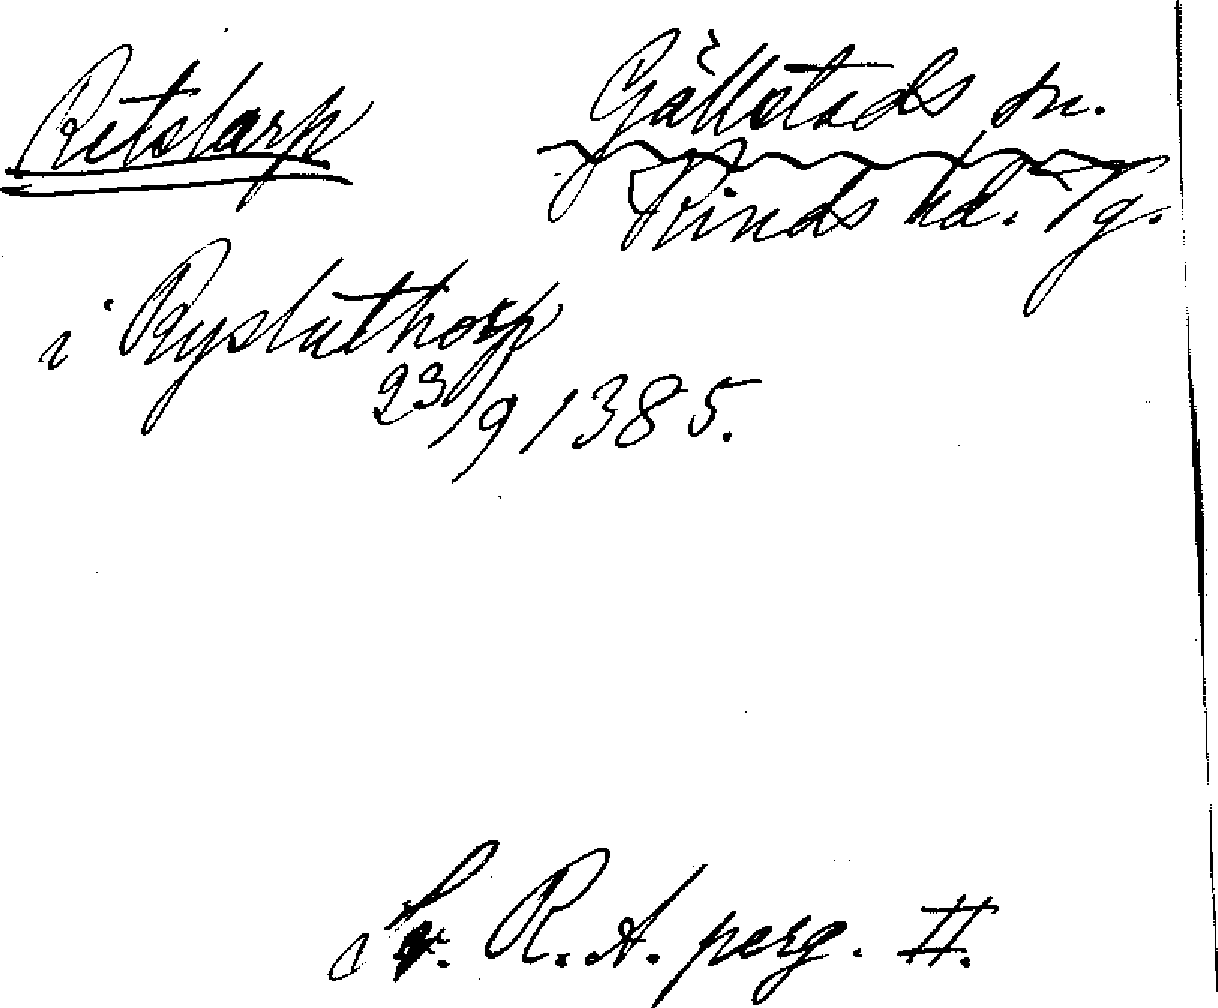 Retstarp Gällstads sn.
Kinds hd. Vg.
i Rysluthorp
23/9 1385.
Sv. R.A. perg. II.